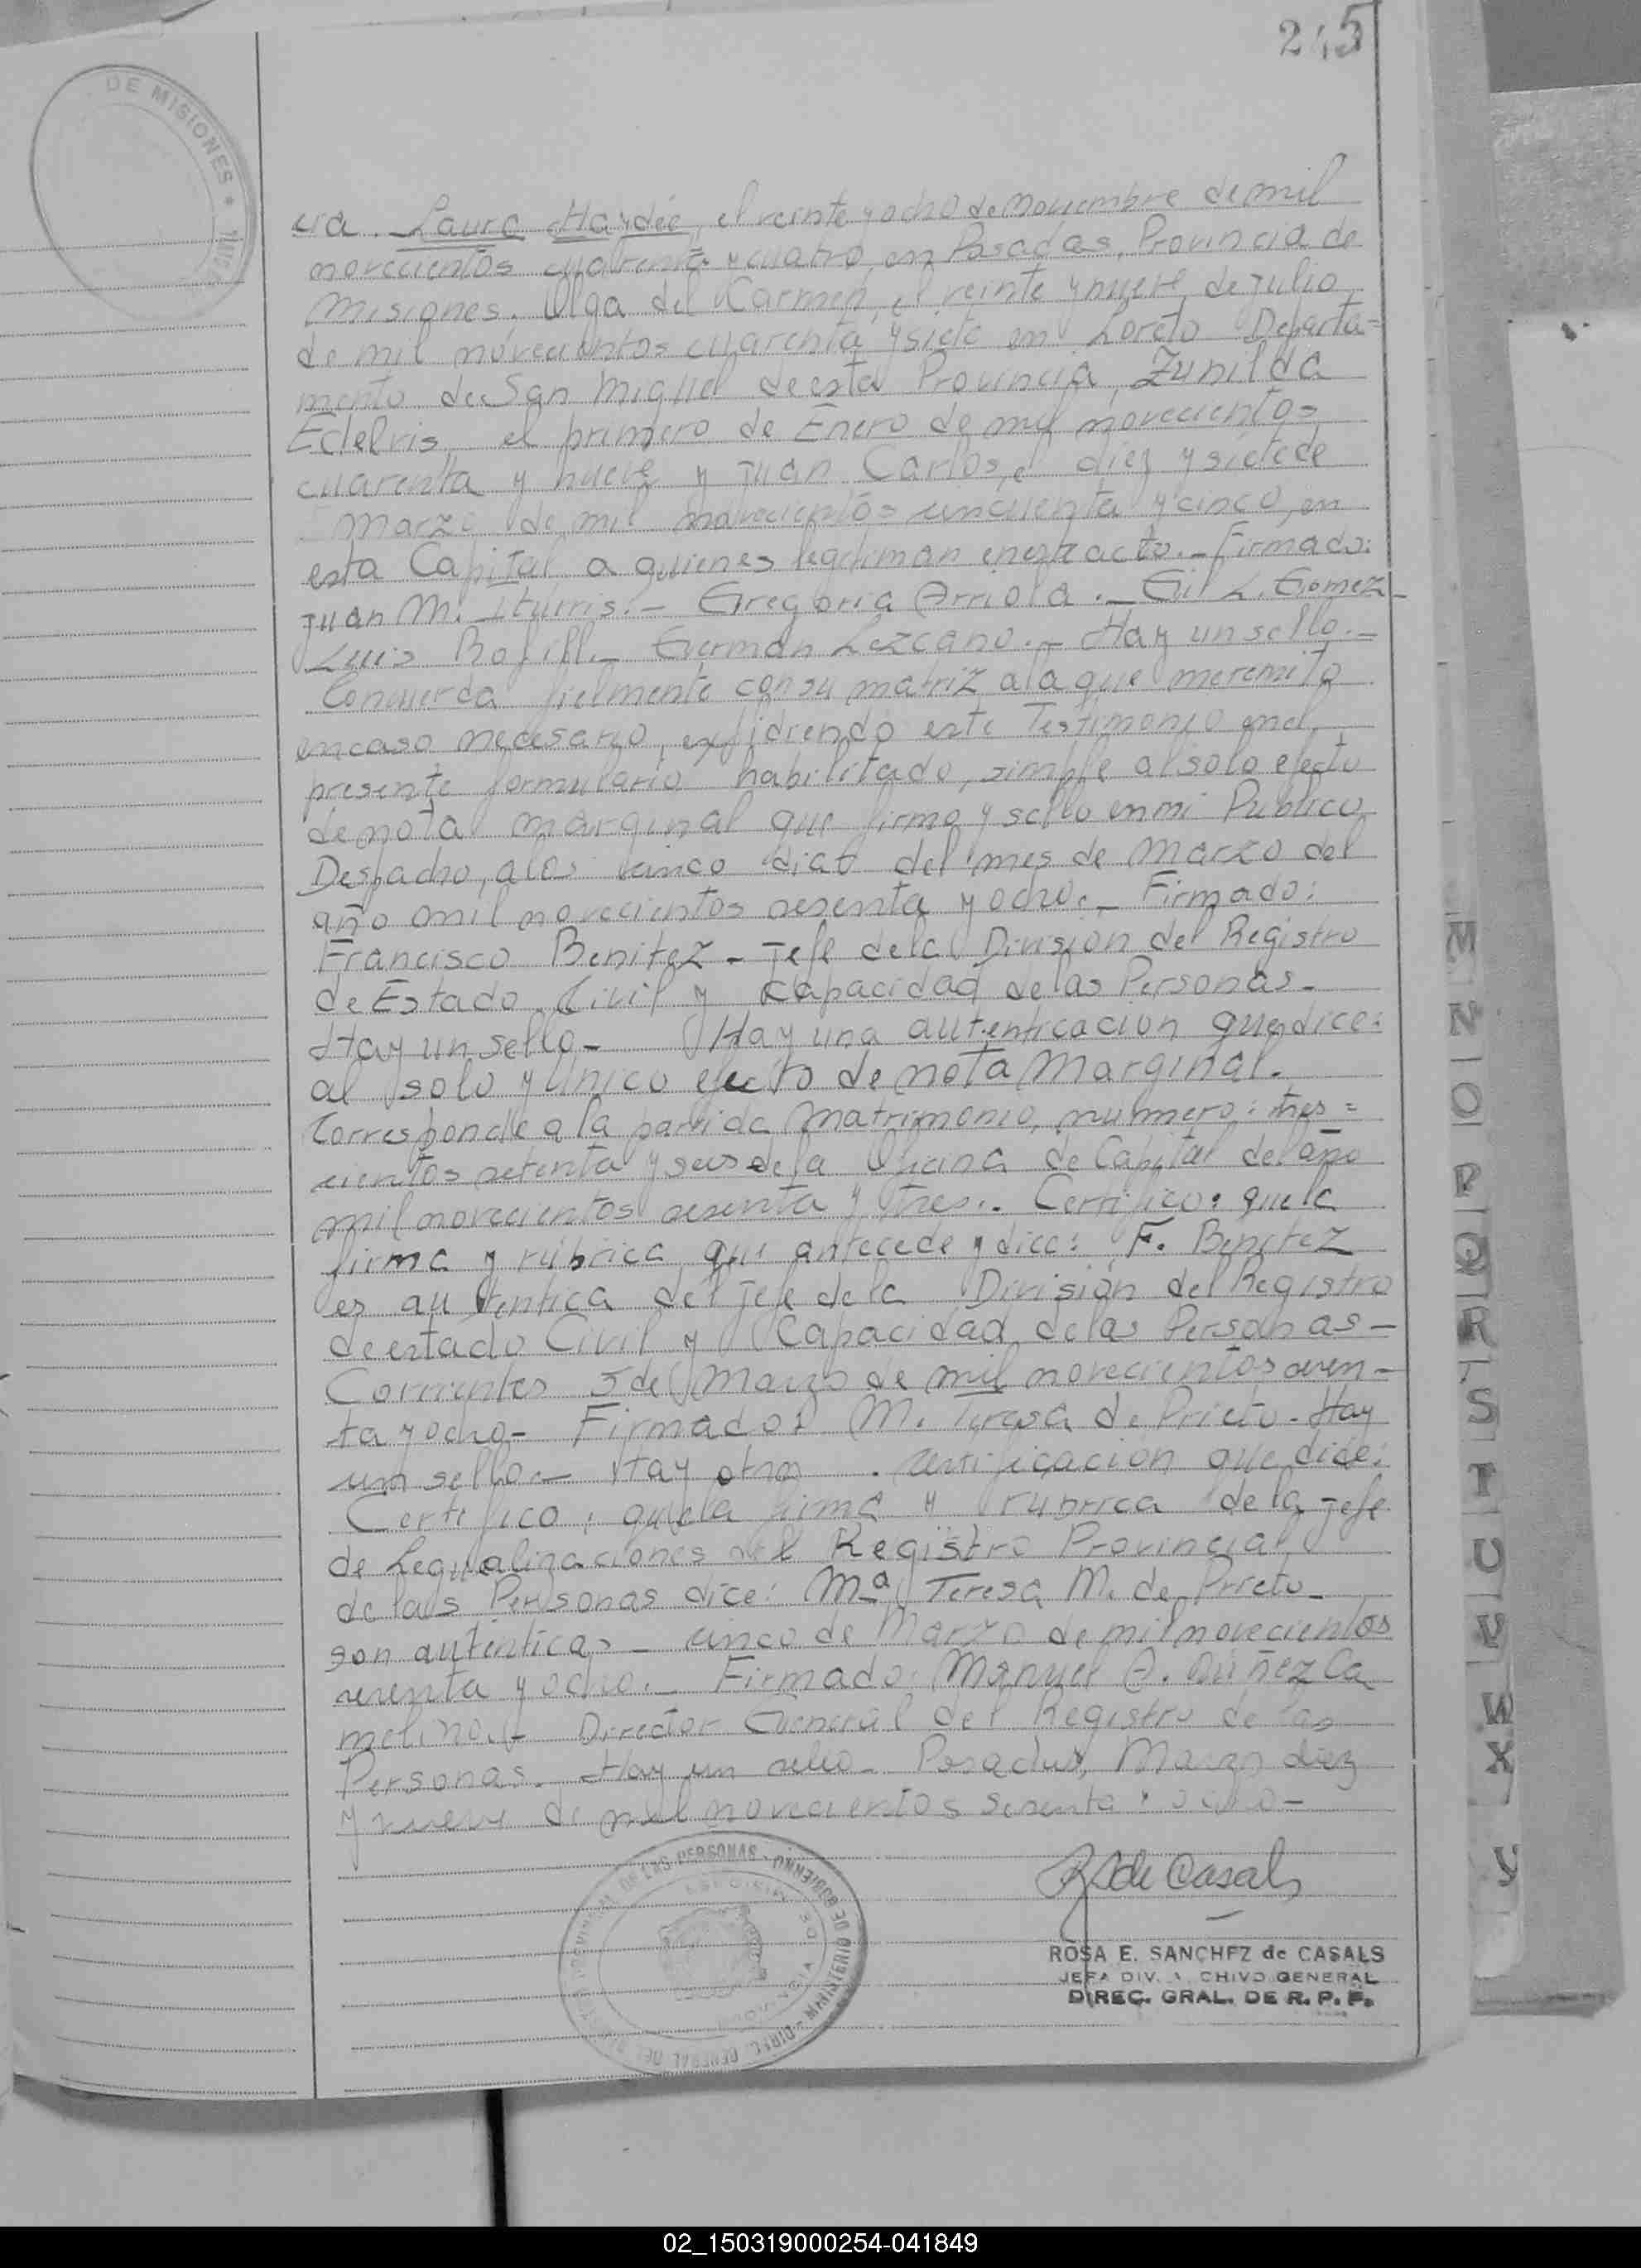 245
DE MISIONES
cia. Laura Haydée, el veinte y ocho de noviembre de mil
novecientos cuarenta y cuatro, en Posadas, Provincia de
Misiones. Olga del Carmen, el veinte y nueve de Julio
de mil novecientos cuarenta y siete en Loreto Departa=
mento de San Miguel de esta Provincia, Zunilda
Edelvis, el primero de Enero de mil novecientos
cuarenta y nueve y Juan Carlos, el diez y siete de
Marzo de mil novecientos cincuenta y cinco, en
esta Capital a quienes legitiman en este acto.- Firmado:
Juan M. Iturris.- Gregoria Arriola.- Gil L. Gomez-
Luis Bofill.- German Lezcano.- Hay un sello.-
Concuerda fielmente con su matriz a la que me remito
en caso necesario, expidiendo este Testimonio en el
presente formulario habilitado, simple al solo efecto
de nota marginal que firmo y sello en mi Público
Despacho, a los cinco dias del mes de Marzo del
año mil novecientos sesenta y ocho.- Firmado:
Francisco Benitez - Jefe de la Division del Registro
de Estado Civil y Capacidad de las Personas-
Hay un sello- Hay una autenticacion que dice:
al solo y único efecto de nota Marginal.
Corresponde a la partida Matrimonio, numero: tres=
cientos setenta y seis de la Oficina de Capital del año
mil novecientos sesenta y tres.. Certifico: que la
firma y rúbrica que antecede y dice: F. Benitez
es autentica del Jefe de la División del Registro
de estado Civil y Capacidad de las Personas-
Corrientes 5 de Marzo de mil novecientos sesen-
ta y ocho- Firmado: M. Teresa de Prieto- Hay
un sello- Hay otra . certificacion que dice:
Certifico, que la firma y rubrica de la Jefe
de Legualizaciones del Registro Provincial
de las Personas dice: Mª Teresa M. de Prieto-
son autenticas- cinco de Marzo de mil novecientos
sesenta y ocho.- Firmado: Manuel A. Núñez Ca
melino.- Director General del Registro de las
Personas. Hay un sello- Posadas, Marzo diez
y nueve de mil novecientos sesenta y ocho-
R S de Casals
ROSA E. SANCHEZ de CASALS
JEFA DIV. A CHIVO GENERAL
DIREC. GRAL. DE R. P. P.
DE LAS PERSONAS - MINISTERIO DE GOBIERNO - DIREC. GENERAL DEL
M
N
O
P
Q
R
S
T
U
V
W
X
Y
02_150319000254-041849